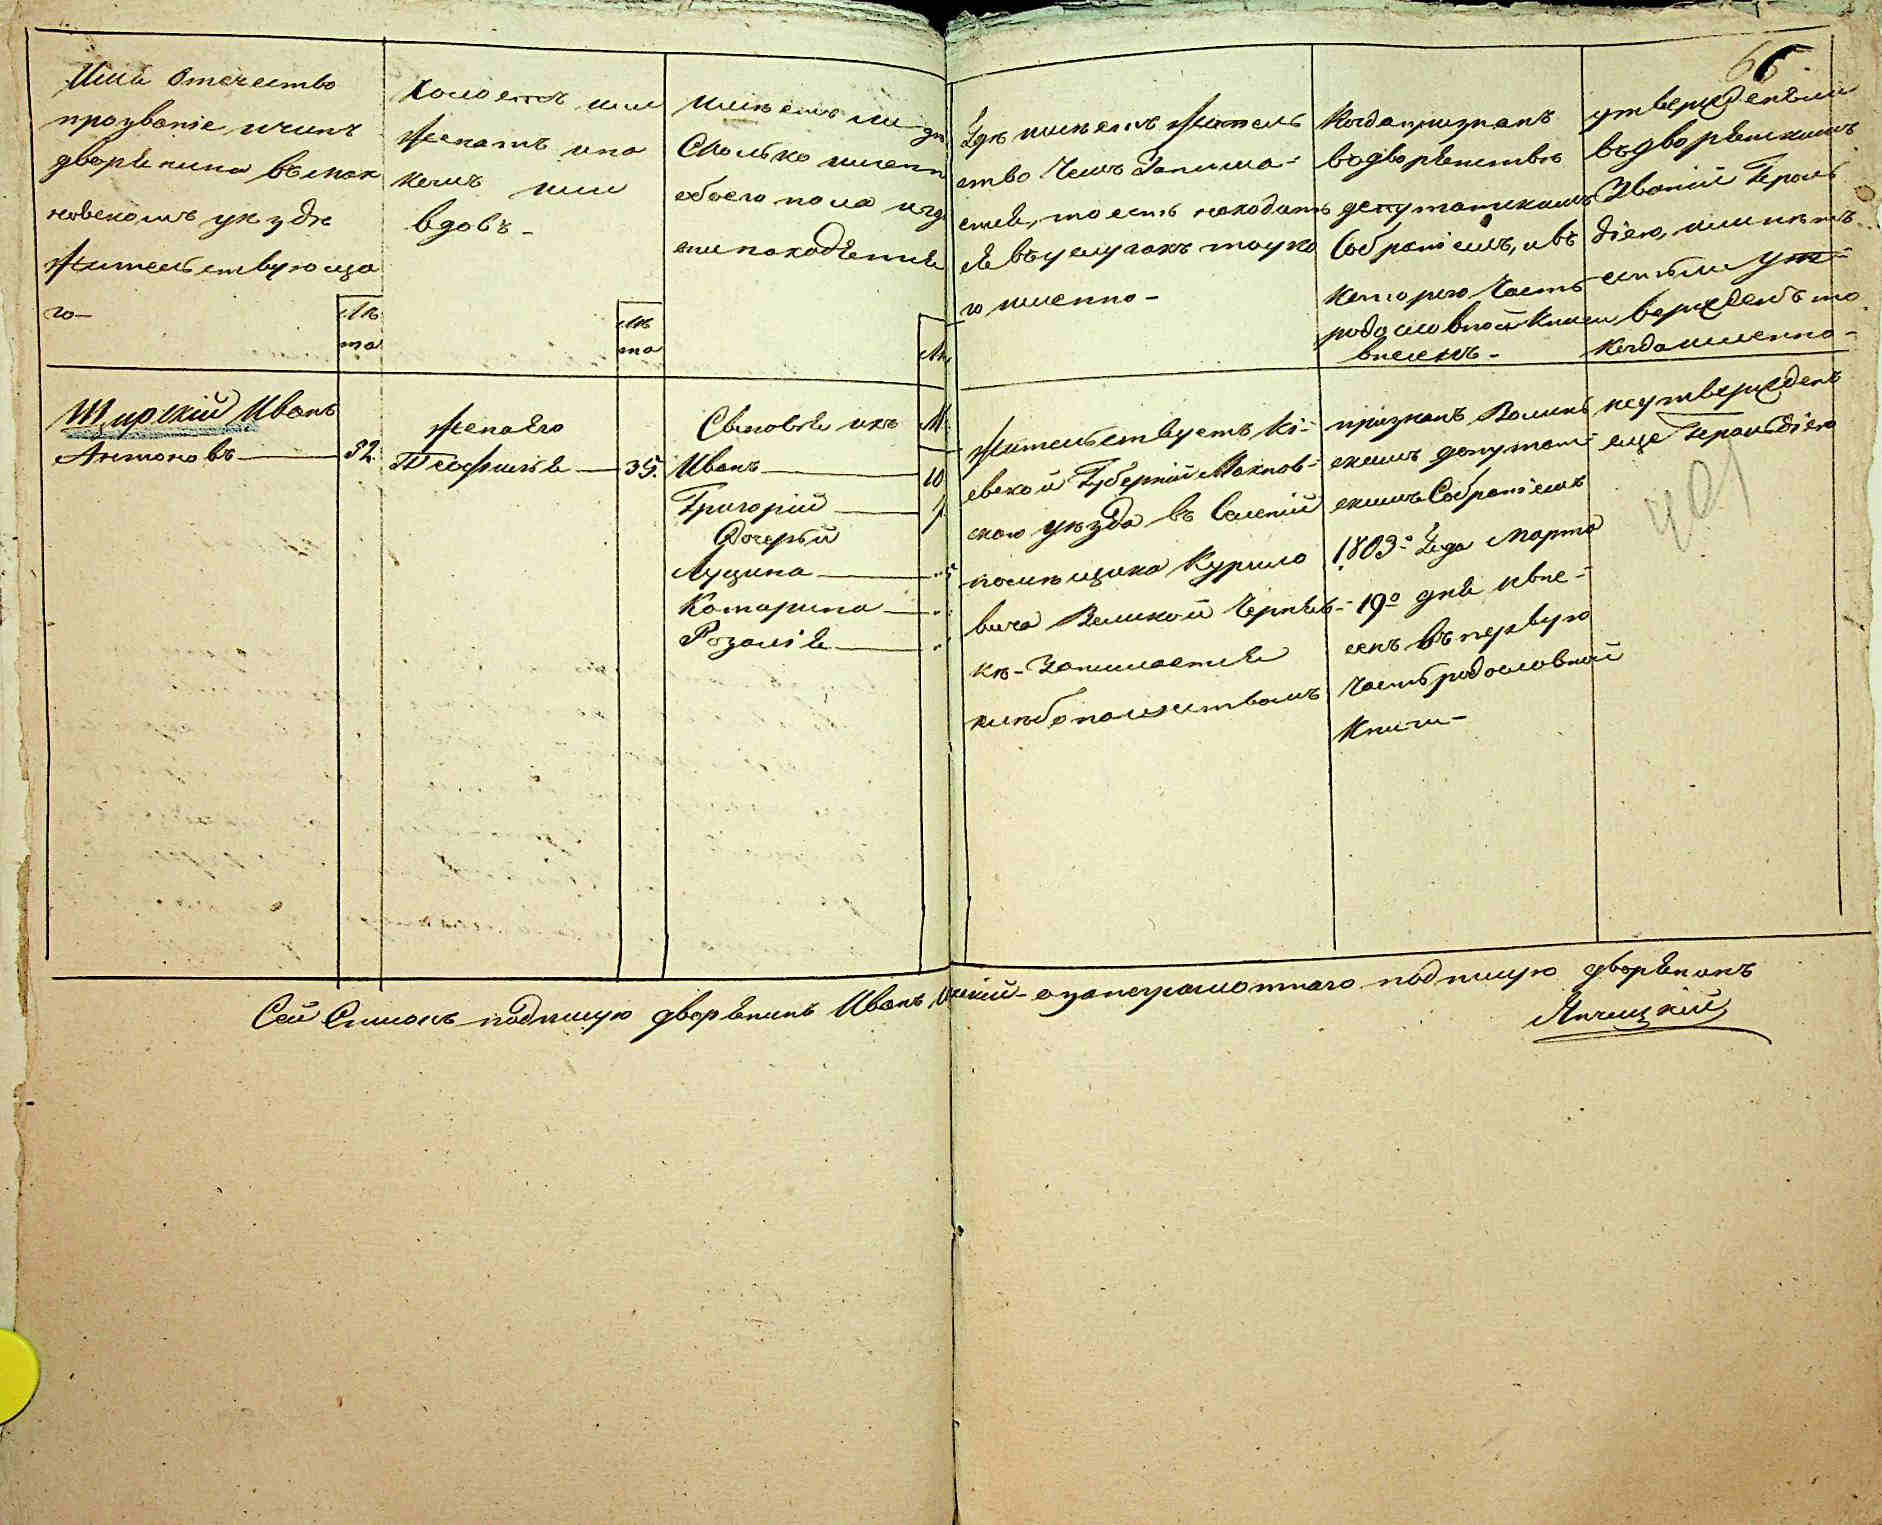 66
Имя Отечество
прозваніе и чинъ
дворянина въ Мах
новскомъ уѣздѣ
жительствующа
го-
Лѣ
та
Холостъ или
женатъ и на
комъ или
вдовъ-
Лѣ
та
имѣетъ ли дѣ
Сколько имянно
обоего пола и гдѣ
они находятся
Лѣ
Гдѣ имѣетъ житель
ство Чемъ Занима-
ется, то есть находит
ся въ услугахъ или у ко
го имянно-
Когда признанъ
въ дворянствѣ
депутатскимъ
Собраніемъ, и въ
которую Часть
родословной Книги
внесенъ-
утвержденъ ли
въ дворянскомъ
Званіи Героль
діею, или нѣтъ
если ли ут-
вержденъ то
когда имянно-
Щирскій Иванъ
Антоновъ 32
Жена его
Теофилія 35.
Сыновья ихъ
Иванъ 10
Григорій
Дочерьи
Луцина
Катарина
Розалія
Жительствуетъ Кі-
евской Губерніи Махнов-
скаго уѣзда въ Селеніи
помѣщика Курило
вича Великой Черняв-
кѣ- Занимается
хлѣбопашествомъ
признанъ Волинс
скимъ депутат-
скимъ Собраніемъ
1803го Года Марта
19го дня и вне-
сенъ въ первую
Часть родословной
Книги-
неутвержденъ
еще Герольдіею
Сей Списокъ подпишу дворянинъ Иванъ Щирскій- а за неграмотнаго подпишу дворянинъ
Яницкій